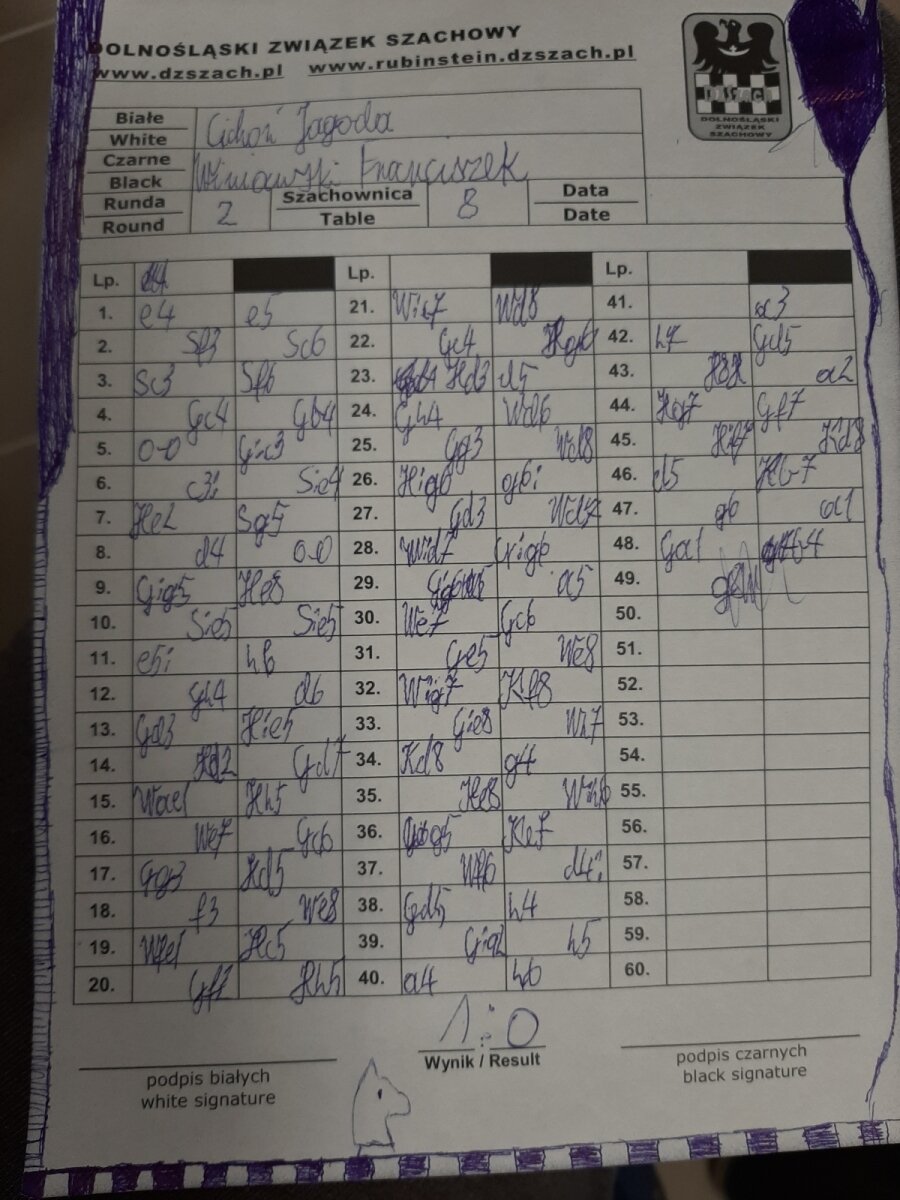 DOLNOŚLĄSKI ZWIĄZEK SZACHOWY
www.dzszach.pl www.rubinstein.dzszach.pl
DZSZACH
DOLNOŚLĄSKI
ZWIĄZEK
SZACHOWY
Białe
White Cichoń Jagoda
Czarne
Black Franciszek
Runda
Round 2 Szachownica
Table 8 Data
Date
Lp. Lp. Lp.
1. e4 e5 21. Wie7 Wd8 41. a3
2. Sf3 Sc6 22. Gc4 42. h7 Gd5
3. Sc3 Sf6 23. Hd3 d5 43. a2
4. Gc4 Gb4 24. Gh4 Wd6 44. Hg7 Gf7
5. 0-0 Gic3 25. Gg3 Wd8 45. Hif7 Kd8
6. c3i Sie4 26. Hig6 g6i 46. d5 Hb7
7. He2 Sg5 27. Gd3 47. g6 a1
8. d4 0-0 28. Wid7 Gig6 48. Ga1
9. Gig5 He8 29. a5 49.
10. Sie5 Sie5 30. We7 Gc6 50.
11. e5i h6 31. Ge5 We8 51.
12. Gh4 d6 32. Wig7 Kf8 52.
13. Gd3 Hie5 33. Gie8 Wh7 53.
14. Hd2 Gd7 34. Kd8 g4 54.
15. Wae1 Hh5 35. He8 Wh6 55.
16. We7 Gc6 36. g5 Ke7 56.
17. Gg3 Hd5 37. Wf6 d4i 57.
18. f3 We8 38. Gd5 h4 58.
19. Wfe1 Hc5 39. Gia2 h5 59.
20. Gf2 Hh5 40. a4 h6 60.
1:0
Wynik / Result
podpis białych
white signature
podpis czarnych
black signature